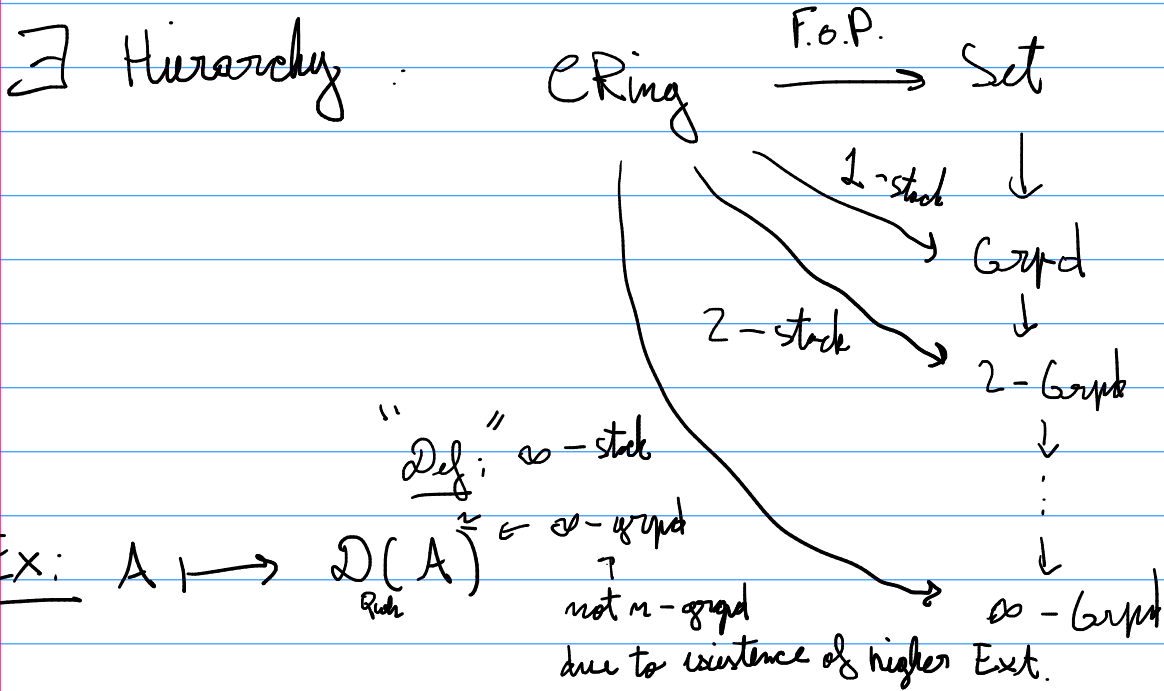 ∃ Hierarchy : CRing F.o.P. → Set
↓
1-stack
Grpd
↓
2-stack
2-Grpd
↓
"Def:" ∞-stack
⋮
↓
Ex: A ↦ D(A)^≃ ← ∞-grpd
Qcoh
↑
not n-grpd
∞-Grpd
due to existence of higher Ext.